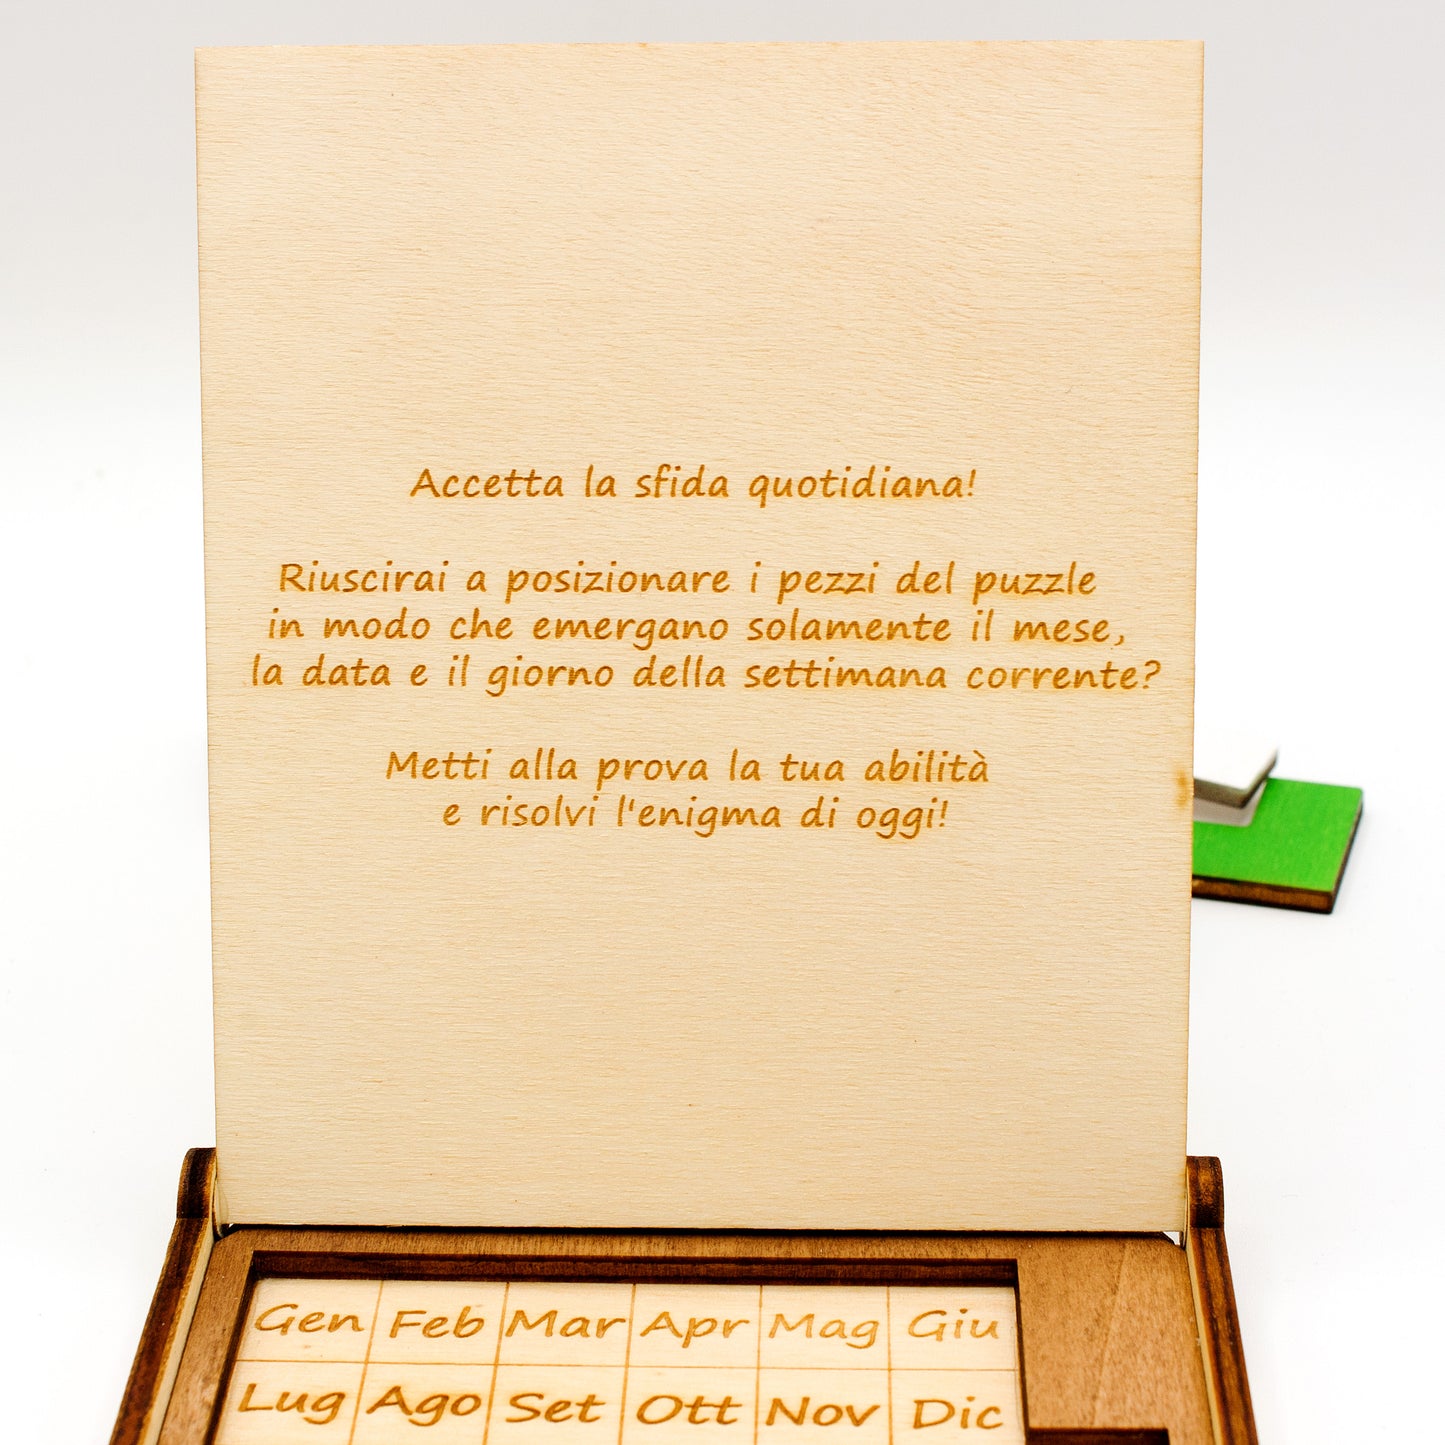 Accetta la sfida quotidiana!
Riuscirai a posizionare i pezzi del puzzle
in modo che emergano solamente il mese,
la data e il giorno della settimana corrente?
Metti alla prova la tua abilità
e risolvi l'enigma di oggi!
Gen Feb Mar Apr Mag Giu
Lug Ago Set Ott Nov Dic